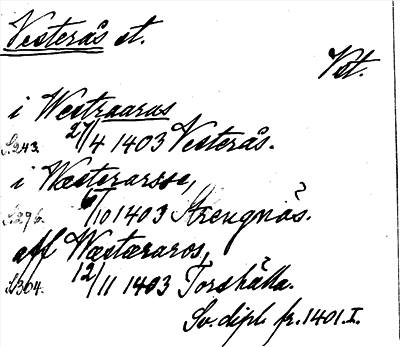 Vesterås st.
Vst.
i Westraarus
S.243. 27/4 1403 Vesterås.
i Wæsterarsse,
S.296. 6/10 1403 Strengnäs.
aff Wæstæraros,
S.304. 12/11 1403 Torshälla.
Sv. dipl. fr. 1401. I.